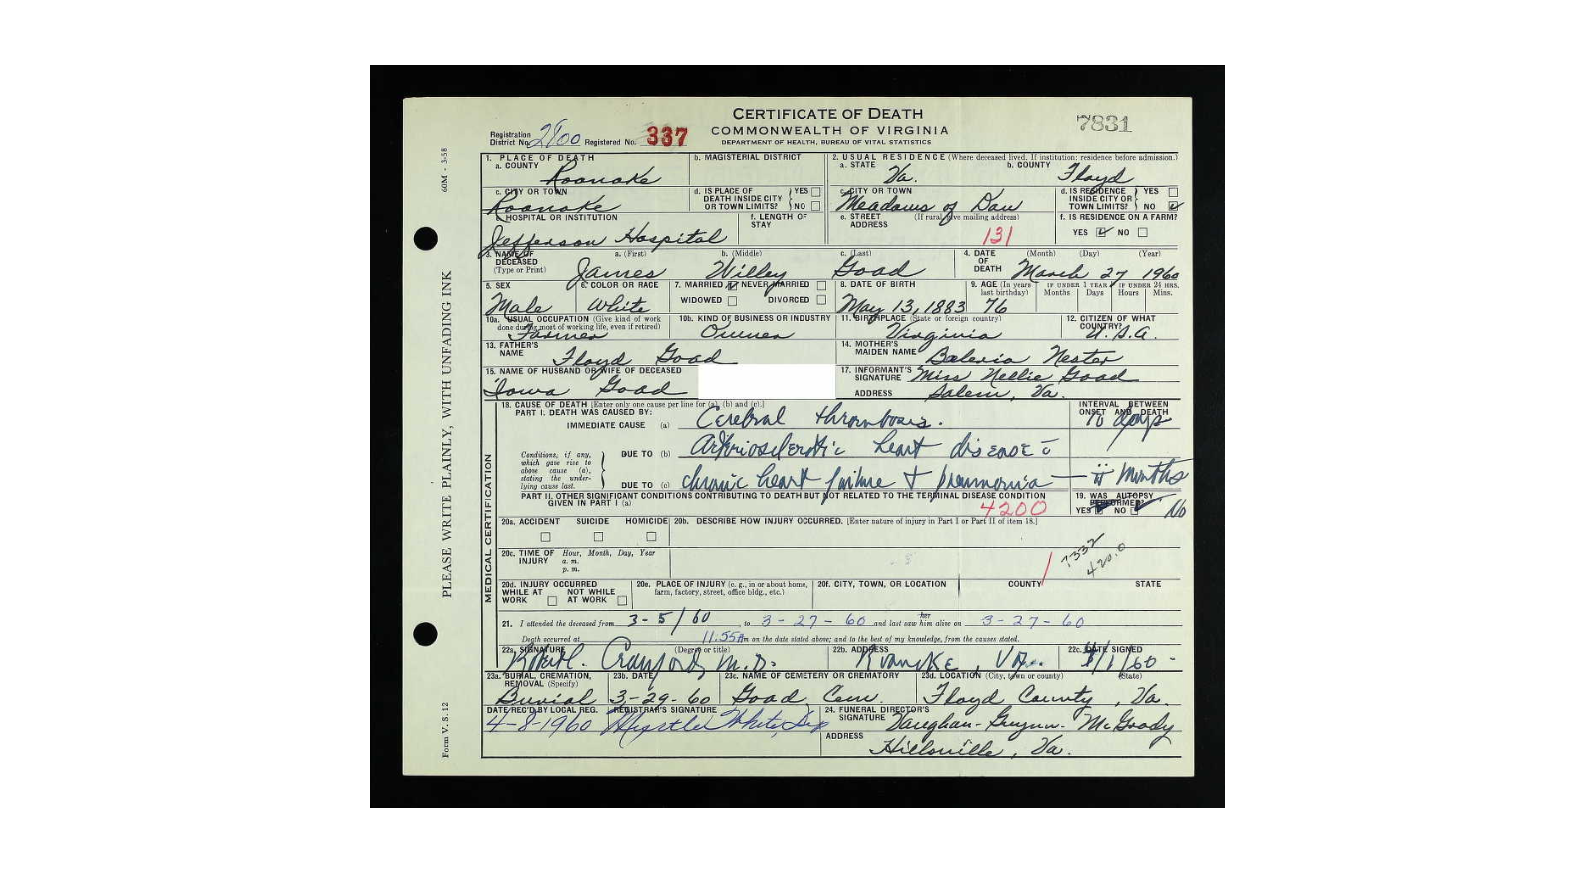 CERTIFICATE OF DEATH
COMMONWEALTH OF VIRGINIA
DEPARTMENT OF HEALTH, BUREAU OF VITAL STATISTICS
7831
Registration District No. 2800 Registered No. 337
60M - 3-58
PLEASE WRITE PLAINLY, WITH UNFADING INK
Form V. S. 12
1. PLACE OF DEATH
a. COUNTY Roanoke
b. MAGISTERIAL DISTRICT
2. USUAL RESIDENCE (Where deceased lived. If institution: residence before admission.)
a. STATE Va. b. COUNTY Floyd
c. CITY OR TOWN Roanoke
d. IS PLACE OF DEATH INSIDE CITY OR TOWN LIMITS? YES NO
c. CITY OR TOWN Meadows of Dan
d. IS RESIDENCE INSIDE CITY OR TOWN LIMITS? YES NO
HOSPITAL OR INSTITUTION Jefferson Hospital
f. LENGTH OF STAY
e. STREET ADDRESS (If rural, give mailing address)
131
f. IS RESIDENCE ON A FARM? YES NO
3. NAME OF DECEASED (Type or Print)
a. (First) b. (Middle) c. (Last)
James Willey Goad
4. DATE OF DEATH (Month) (Day) (Year)
March 27 1960
5. SEX Male
6. COLOR OR RACE White
7. MARRIED NEVER MARRIED WIDOWED DIVORCED
8. DATE OF BIRTH May 13, 1883
9. AGE (In years last birthday) 76
IF UNDER 1 YEAR Months Days
IF UNDER 24 HRS. Hours Mins.
10a. USUAL OCCUPATION (Give kind of work done during most of working life, even if retired) Farmer
10b. KIND OF BUSINESS OR INDUSTRY Owner
11. BIRTHPLACE (State or foreign country) Virginia
12. CITIZEN OF WHAT COUNTRY? U.S.A.
13. FATHER'S NAME Floyd Goad
14. MOTHER'S MAIDEN NAME Nester
15. NAME OF HUSBAND OR WIFE OF DECEASED Iowa Goad
17. INFORMANT'S SIGNATURE Miss Nellie Goad
ADDRESS Salem, Va.
MEDICAL CERTIFICATION
18. CAUSE OF DEATH [Enter only one cause per line for (a), (b) and (c).]
PART I. DEATH WAS CAUSED BY:
IMMEDIATE CAUSE (a) Cerebral thrombosis.
INTERVAL BETWEEN ONSET AND DEATH
10 days
Conditions, if any, which gave rise to above cause (a), stating the underlying cause last.
DUE TO (b) Arteriosclerotic heart disease c̄
DUE TO (c) chronic heart failure + pneumonia — ii Months
PART II. OTHER SIGNIFICANT CONDITIONS CONTRIBUTING TO DEATH BUT NOT RELATED TO THE TERMINAL DISEASE CONDITION GIVEN IN PART I (a)
4200
19. WAS AUTOPSY PERFORMED? YES NO No
20a. ACCIDENT SUICIDE HOMICIDE
20b. DESCRIBE HOW INJURY OCCURRED. [Enter nature of injury in Part I or Part II of item 18.]
20c. TIME OF INJURY Hour, Month, Day, Year a. m. p. m.
7332
420.0
20d. INJURY OCCURRED WHILE AT WORK NOT WHILE AT WORK
20e. PLACE OF INJURY (e. g., in or about home, farm, factory, street, office bldg., etc.)
20f. CITY, TOWN, OR LOCATION COUNTY STATE
21. I attended the deceased from 3-5/60 to 3-27-60 and last saw him her alive on 3-27-60
Death occurred at 11.55 Am on the date stated above; and to the best of my knowledge, from the causes stated.
22a. SIGNATURE (Degree or title) Crawford M.D.
22b. ADDRESS Roanoke, Va.
22c. DATE SIGNED 4/1/60
23a. BURIAL, CREMATION, REMOVAL (Specify) Burial
23b. DATE 3-29-60
23c. NAME OF CEMETERY OR CREMATORY Goad Cem.
23d. LOCATION (City, town or county) (State) Floyd County, Va.
DATE REC'D BY LOCAL REG. 4-8-1960
REGISTRAR'S SIGNATURE Myrtle White, Dep
24. FUNERAL DIRECTOR'S SIGNATURE Vaughan-Guynn-McGrady
ADDRESS Hillsville, Va.